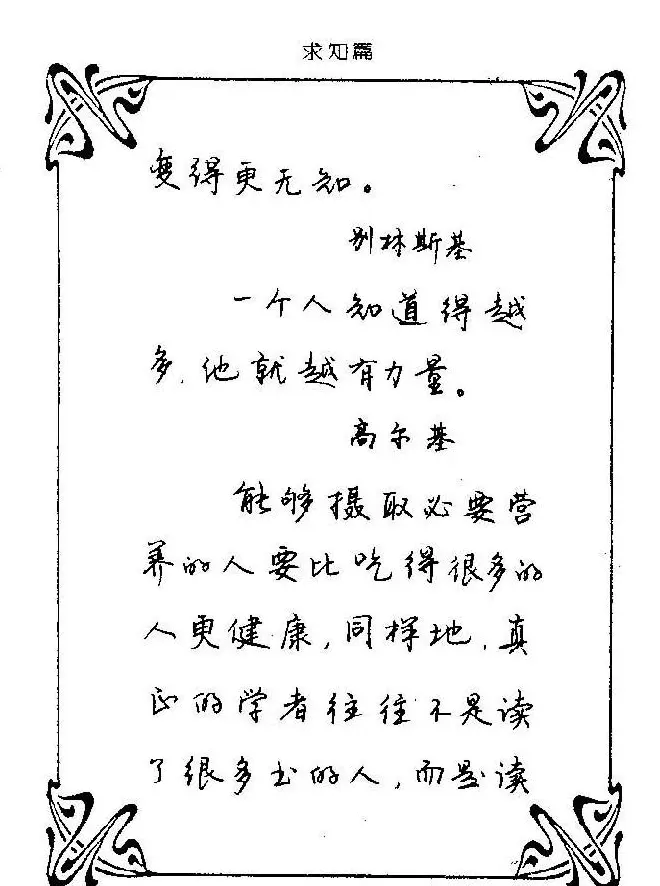 求知篇
变得更无知。
别林斯基
一个人知道得越
多,他就越有力量。
高尔基
能够摄取必要营
养的人要比吃得很多的
人更健康,同样地,真
正的学者往往不是读
了很多书的人,而是读